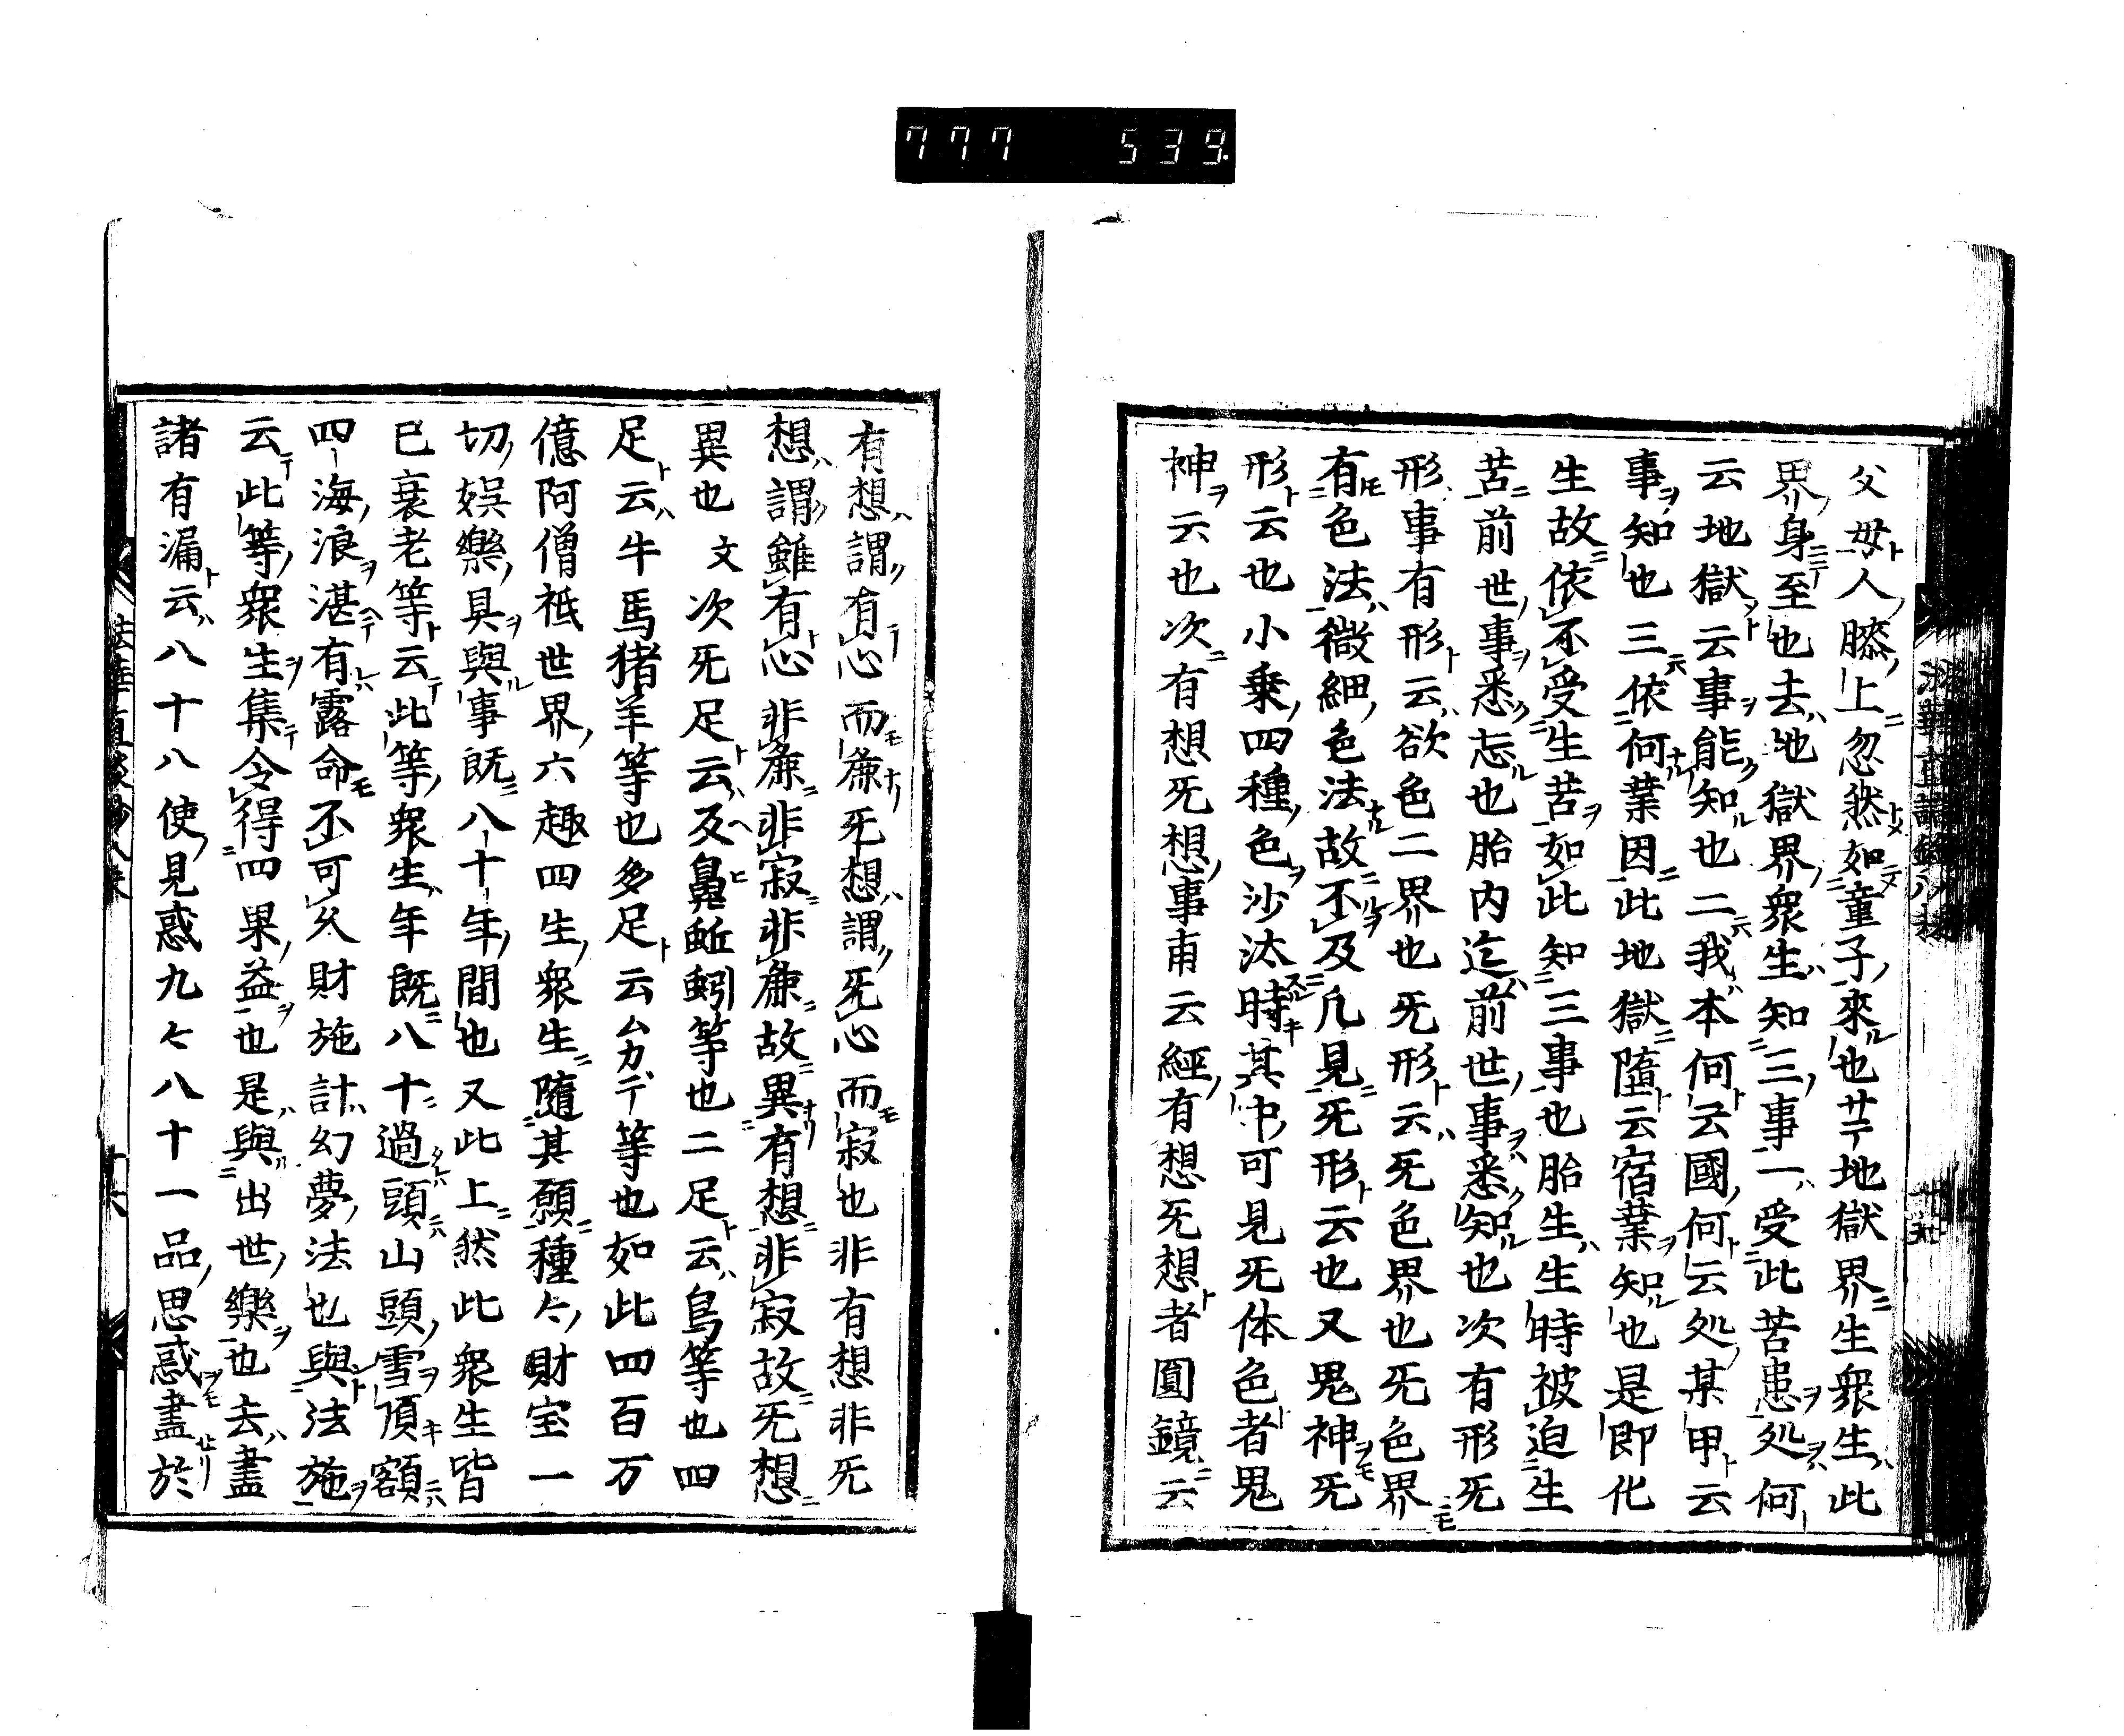 777 539
父母人膝上忽然如童子來也サテ地獄界生衆生此
界身至也去地獄界衆生知三事一受此苦患処何
云地獄云事能知也二我本何云國何云処某甲云
事知也三依何業因此地獄墮云宿業知也是即化
生故依不受生苦如此知三事也胎生生時被迫生
苦前世事悉忘也胎内迄前世事悉知也次有形旡
形事有形云欲色二界也旡形云旡色界也旡色界
有色法微細色法故不及凡見旡形云也又鬼神旡
形云也小乗四種色沙汰時其中可見旡体色者鬼
神云也次有想旡想事甫云經有想旡想者圓鏡云
有想謂有心而麁旡想謂旡心而寂也非有想非旡
想謂雖有心非麁非寂非麁故異有想非寂故旡想
異也文次旡足云及鼻蚯蚓等也二足云鳥等也四
足云牛馬猪羊等也多足云ムカデ等也如此四百万
億阿僧祇世界六趣四生衆生隨其願種々財宝一
切娯樂具與事既八十年間也又此上然此衆生皆
已衰老等云此等衆生年既八十過頭山頭雪頂額
四海浪湛有露命不可久財施計幻夢法也與法施
云此等衆生集令得四果益也是與出世樂也去盡
諸有漏云八十八使見惑九々八十一品思惑盡於